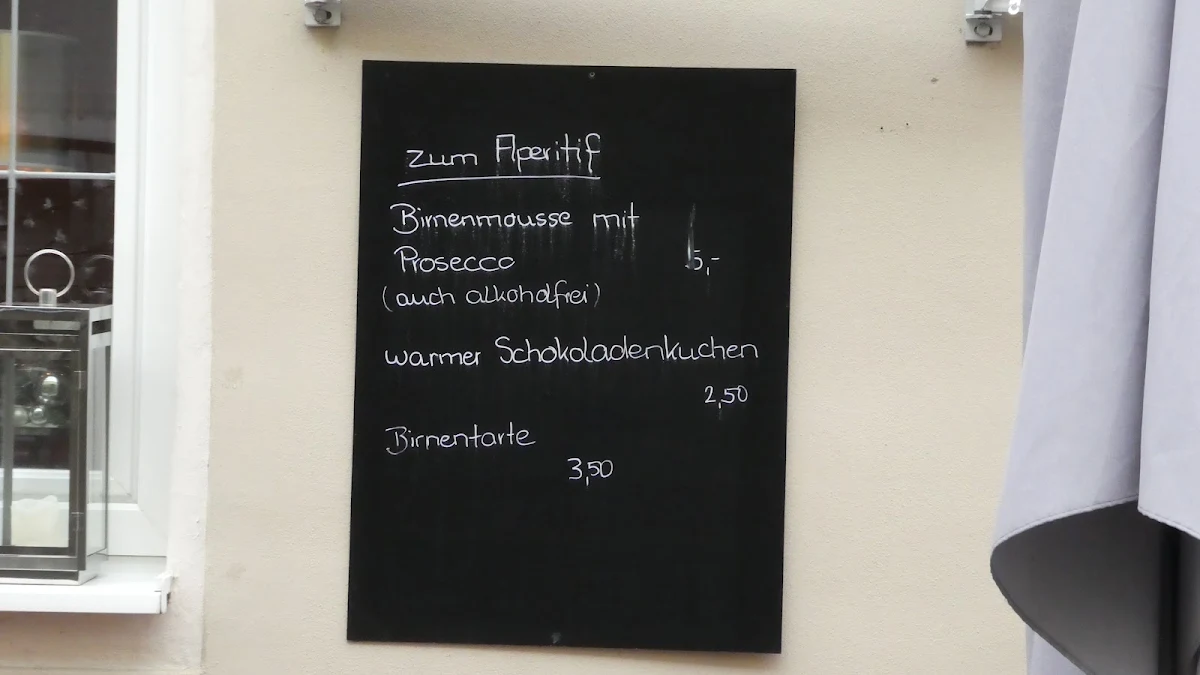 zum Aperitif
Birnenmousse mit
Prosecco 5,-
(auch alkoholfrei)
warmer Schokoladenkuchen
2,50
Birnentarte
3,50